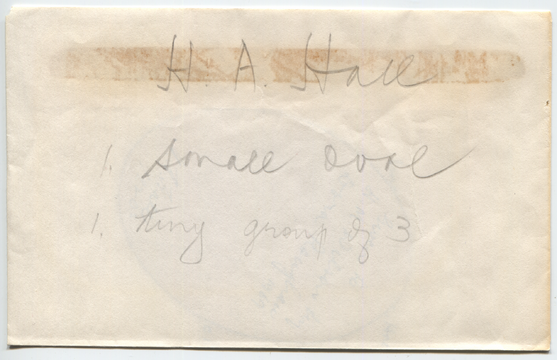 H. A. Hall
1. small oval
1. tiny group of 3